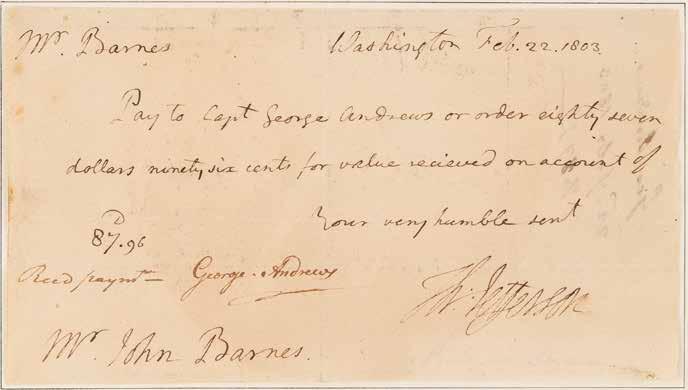 Mr. Barnes Washington Feb. 22. 1803
Pay to Capt George Andrews or order eighty seven
dollars ninety six cents for value recieved on account of
Your very humble servt
D
87.96
Recd paymt George Andrews
Th: Jefferson
Mr. John Barnes.